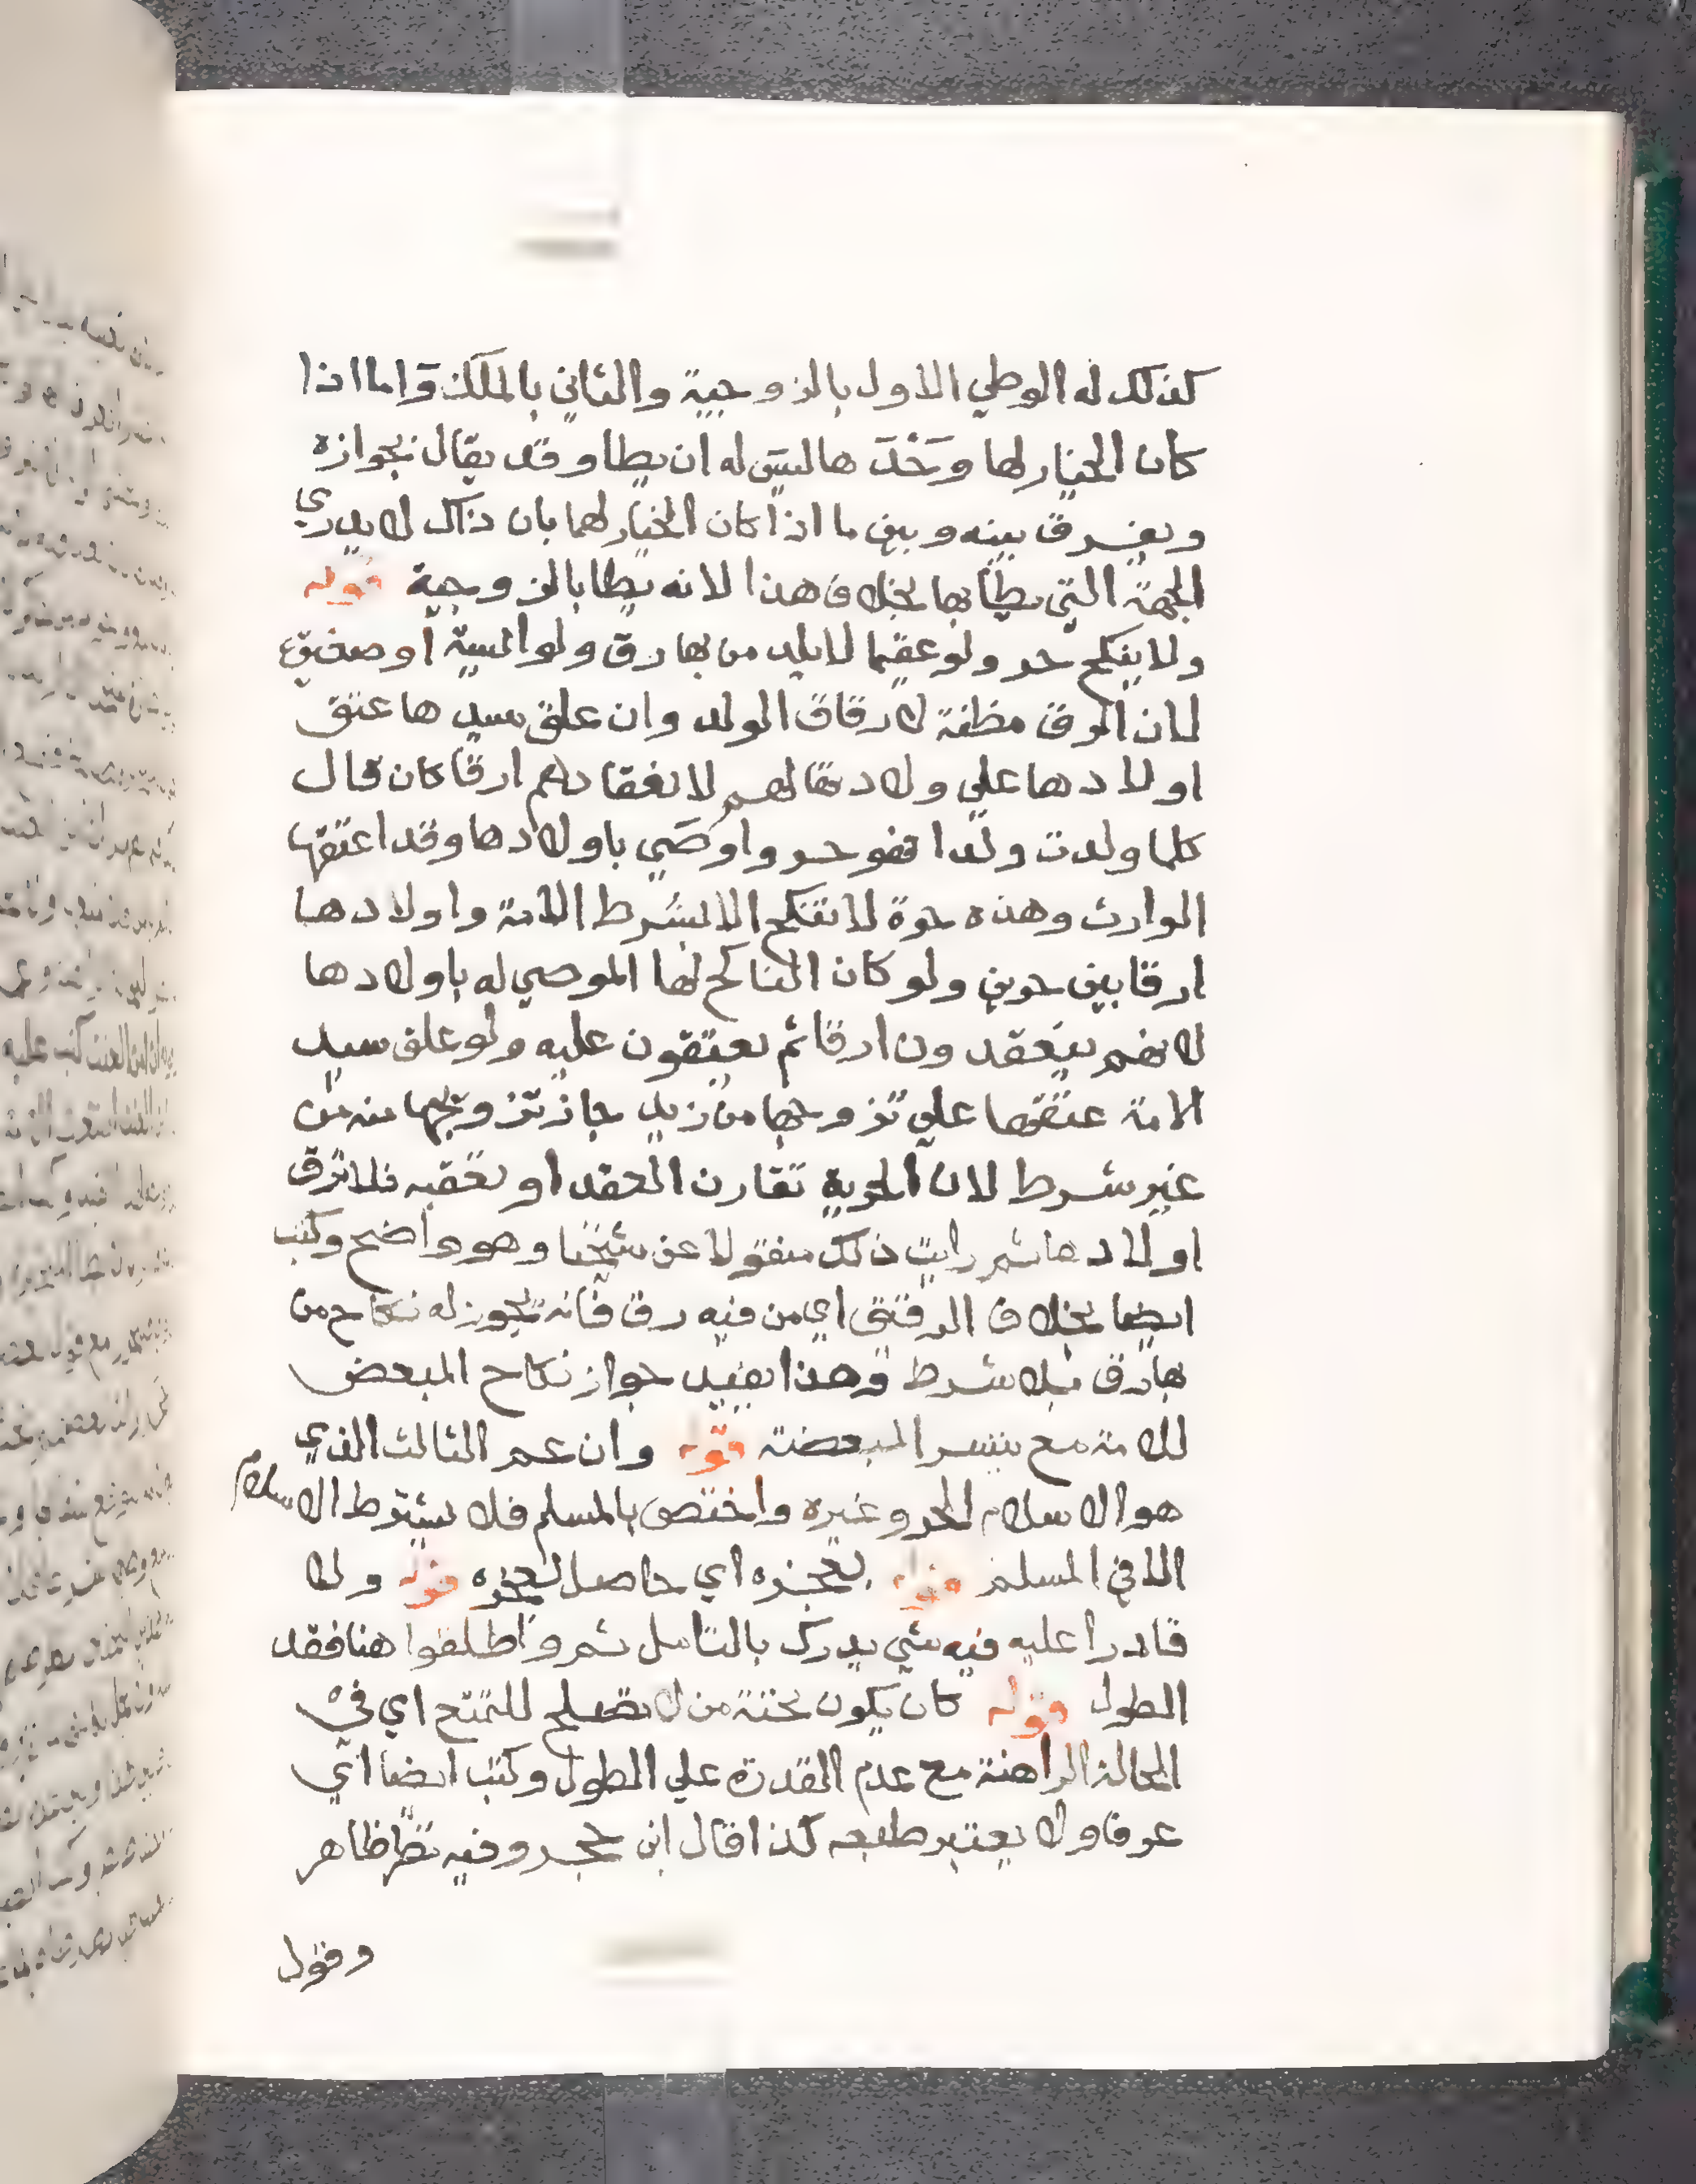 كذلك له الوطي الاول بالزوجية والثاني بالملك واما اذا
كان الخيار لها وحدها ليس له ان يطا وقد يقال بجوازه
ويفرق بينه وبين ما اذا كان الخيار لهما بان ذاك لا يدري
الجهة التي يطا بها بخلاف هذا لانه يطا بالزوجية قوله
ولا ينكح حر ولو عقيما لا يلد من بها رق ولو ائسية او
لان الرق مظنة لارقاق الولد وان علق سيدها عتق
اولادها علي ولادتها لهم لانعقادهم ارقا كان قال
كلما ولدت ولدا فهو حر واوصي باولادها وقد اعتقها
الوارث وهذه حرة لا تنكح الا بشرط الامة واولادها
ارقا بين حرين ولو كان الناكح لها الموصي له باولادها
لانهم ينعقدون ارقا ثم يعتقون عليه ولو علق سيد
الامة عتقها علي تزوجها من زيد جاز تزويجها منه من
غير شرط لان الحرية تقارن العقد او تعقبه فلا ترق
اولادها ثم رايت ذلك منقولا عن شيخنا وهو واضح وكتب
ايضا بخلاف الرقيق اي من فيه رق فانه يجوز له نكاح من
بها رق بلا شرط وهذا يفيد جواز نكاح المبعض
للامة مع تيسر المبعضة قوله وان عم الثالث الذي
هو الاسلام الحر وغيره واختص بالمسلم فلا يشترط الاسلام
الا في المسلم قوله بعجزه اي حاصل بعجزه قوله ولا
قادرا عليه فيه شي يدرك بالتامل ثم واطلقوا هنا فقد
الطول قوله كان يكون تحته من لا تصلح للتمتع اي في
الحالة الراهنة مع عدم القدرة علي الطول وكتب ايضا اي
عرفا ولا يعتبر طبعه كذا قال ابن حجر وفيه نظر ظاهر
وقول